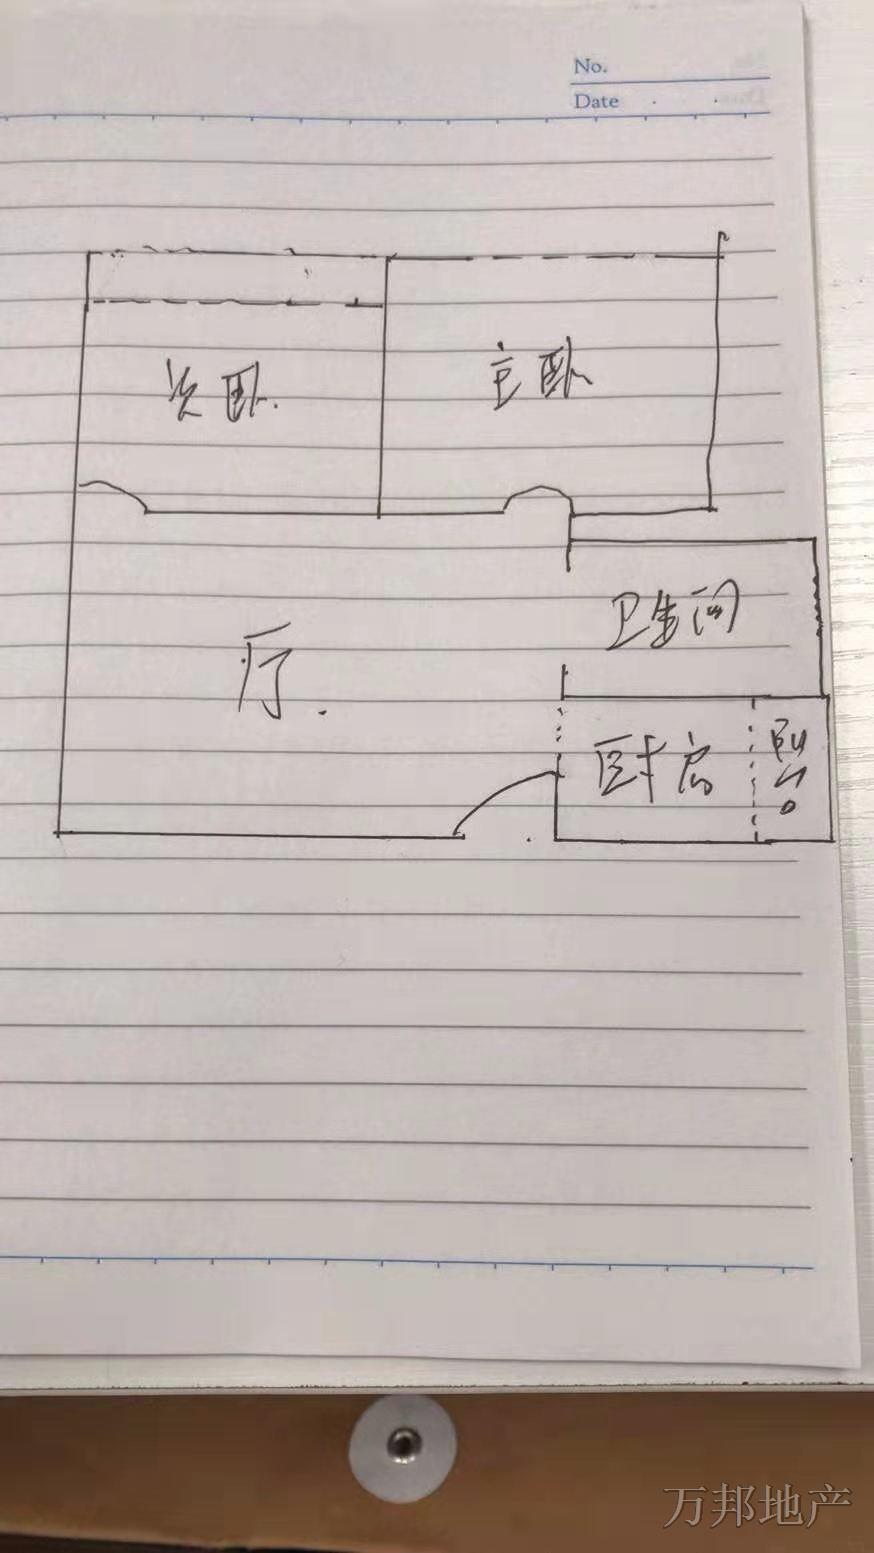 No.
Date
次卧
主卧
卫生间
厅
厨房
阳台
万邦地产